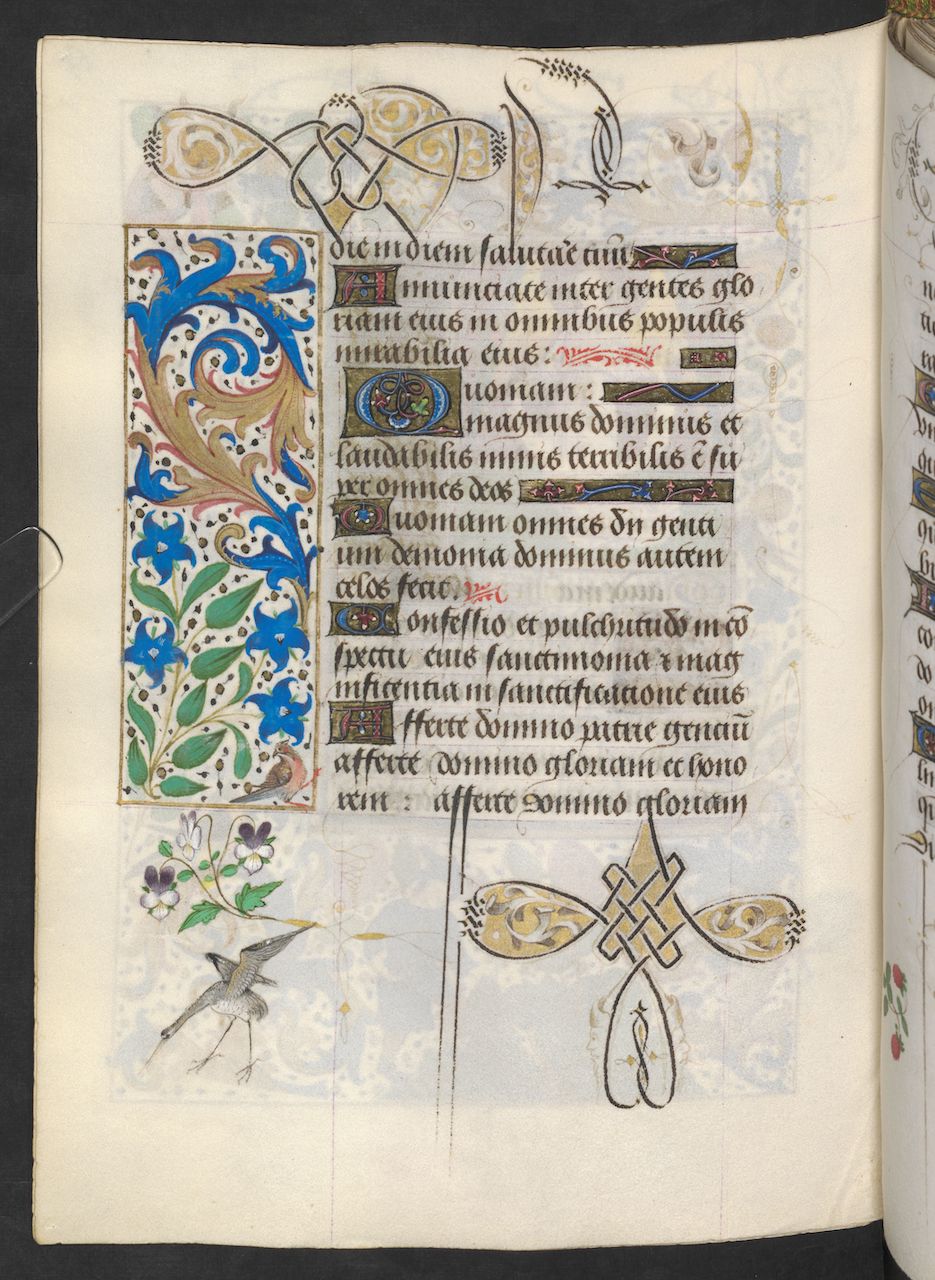 die in diem salutare tuū
Annunciate inter gentes glo
riam eius in omnibus populis
mirabilia eius:
Quoniam:
magnus dominus et
laudabilis nimis terribilis ē su
per omnes deos
Quoniam omnes dii genti
um demonia dominus autem
celos fecit
Confessio et pulchritudo in cō
spectu eius sanctimonia et mag
nificentia in sanctificatione eius
Afferte domino patrie genciū
afferte domino gloriam et hono
rem: afferte domino gloriam